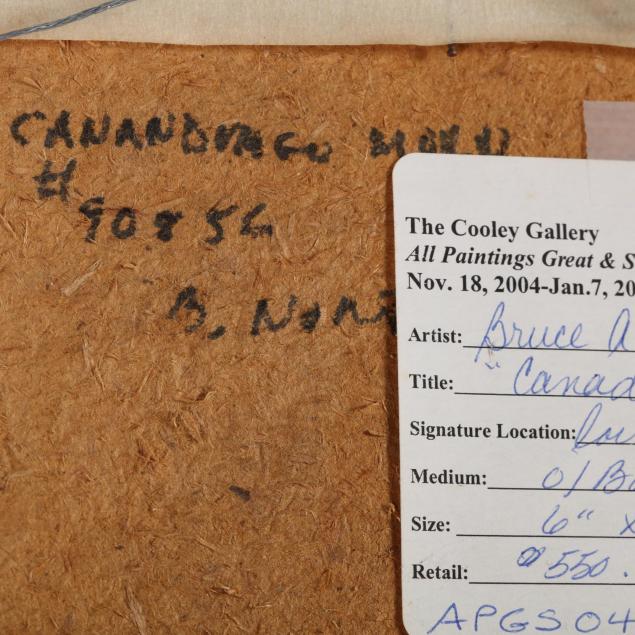 CANANDUAGO
#
90856
B. NOR
The Cooley Gallery
All Paintings Great & S
Nov. 18, 2004-Jan.7, 20
Artist: Bruce A
Title: "Canad
Signature Location:
Medium: O/Bo
Size: 6" x
Retail: $550.
APGS 04